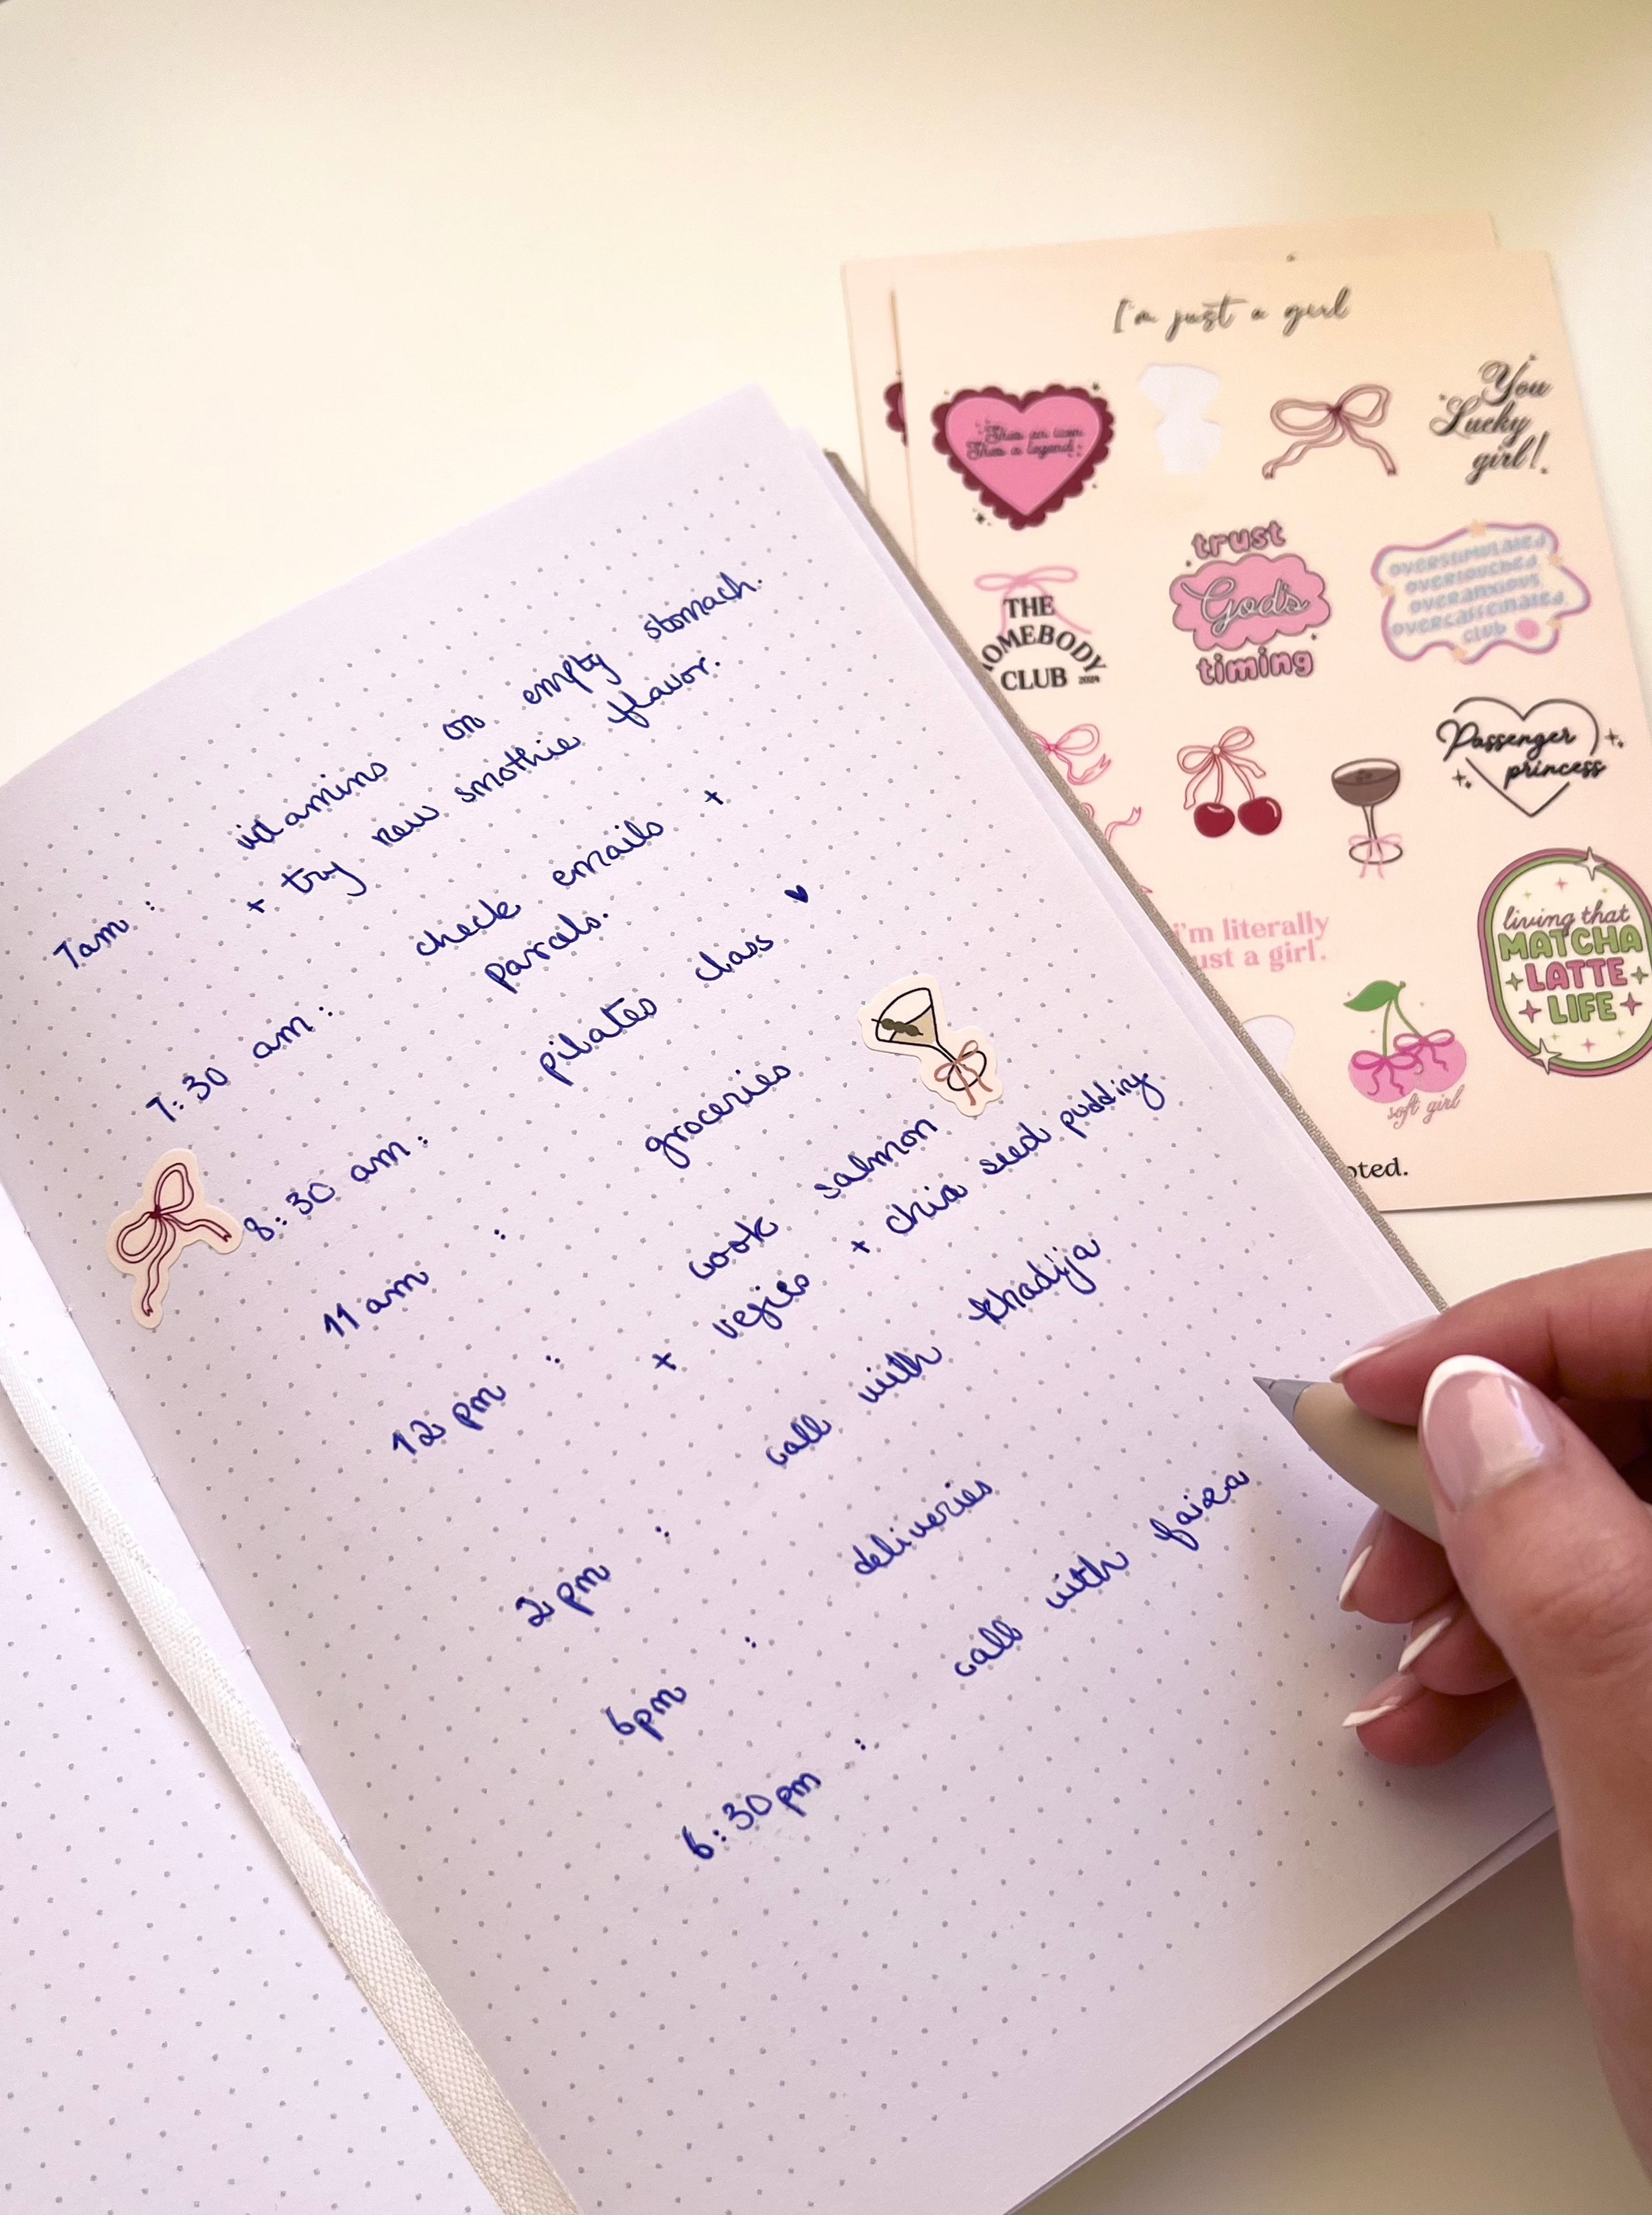 7am : vitamins on empty stomach.
+ try new smothie flavor.
7:30 am : check emails +
parcels.
8:30 am : pilates class ♥
11 am : groceries
12 pm : cook salmon
+ vegies + chia seed pudding
2 pm : call with khadija
6pm : deliveries
6:30 pm : call with faiza
I'm just a girl
You
Lucky
girl!
trust
God's
timing
OVERSTIMULATED
OVERTOUCHED
OVERANXIOUS
OVERCAFFEINATED
CLUB
THE
OMEBODY
CLUB 2024
Passenger
princess
i'm literally
ust a girl.
living that
MATCHA
LATTE
LIFE
soft girl
oted.